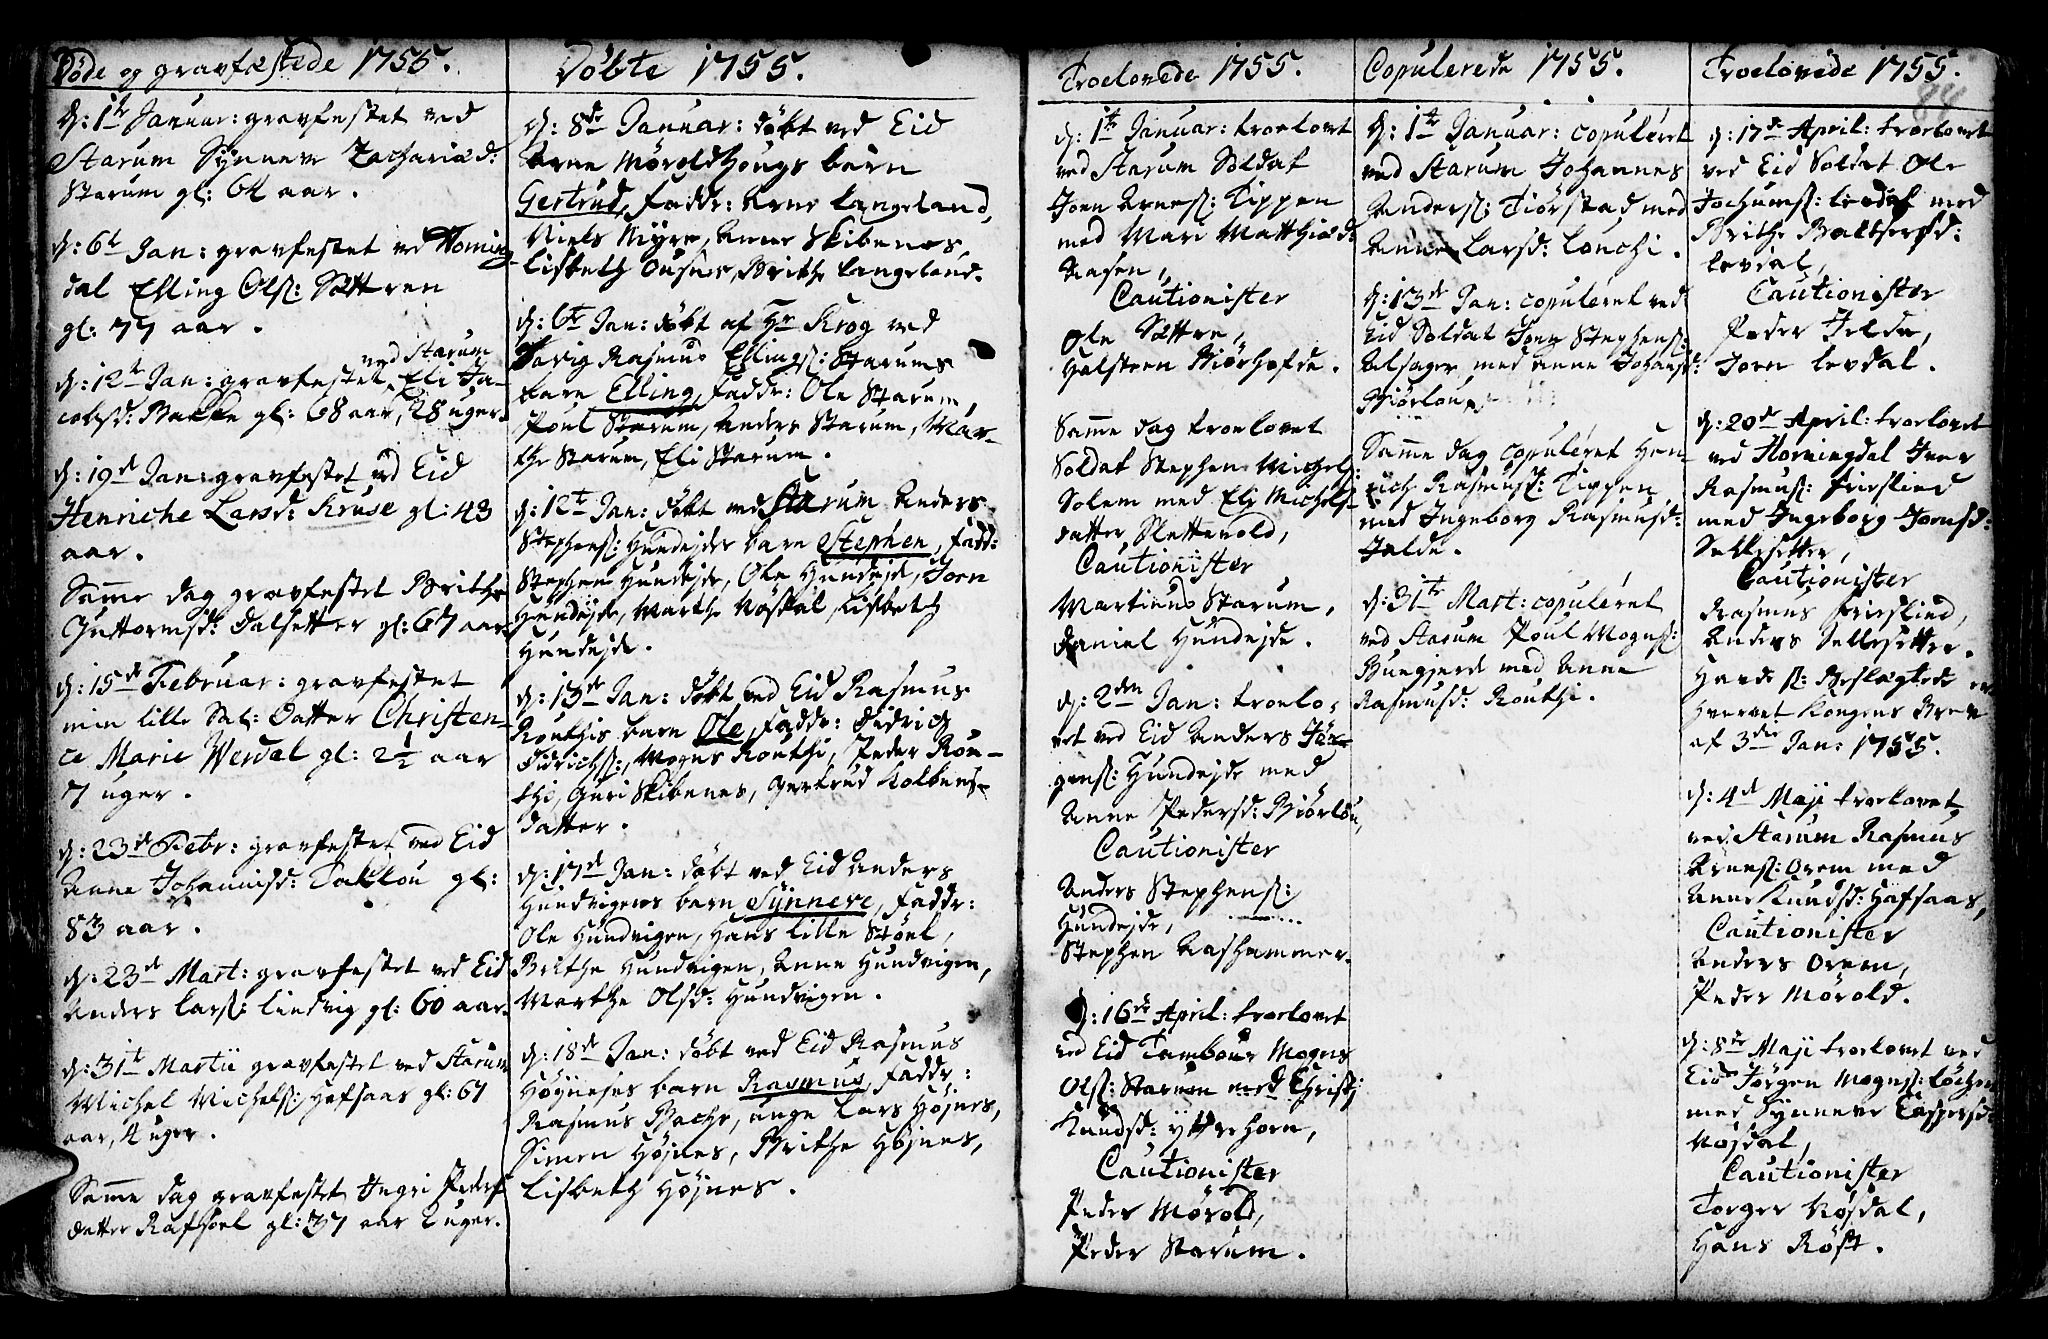 Døde og gravfæstede 1755.
d: 1te Januar: gravfestet ved
Starum Synneve Zachariæd:
Starum gl: 64 aar.
d: 6te Jan: gravfestet ved Horning-
dal Elling Ols: Sættren
gl: 77 aar.
ved Starum
d: 12te Jan: gravfestet Eli Ja-
cobsd: Bakke gl: 68 aar, 28 uger.
d: 19de Jan: gravfestet ved Eid
Henriche Larsd: Kruse gl: 43
aar.
Samme dag gravfestet Brithe
Guttormsd: Dalsetter gl: 67 aar.
d: 15de Februar: gravfestet
min lille Sal: Datter Christen-
ce Marie Werdal gl: 2½ aar
7 uger.
d: 23de Febr: gravfestet ved Eid
Anne Johannisd: Taklou gl:
83 aar.
d: 23de Mart: gravfestet ved Eid
Anders Lars: Lindvig gl: 60 aar.
d: 31te Martii gravfestet ved Starum
Michel Michels: Hafsaas gl: 67
aar, 4 uger.
Samme dag gravfestet Ingri Peders
datter Rafsoel gl: 37 aar 2 uger.
Døbte 1755.
d: 8de Januar: døbt ved Eid
Arne Møroldhougs barn
Gertrud, Faddr: Arne Langeland,
Niels Myre, Anne Skibenes,
Lisbeth Ousnes, Brithe Langeland.
d: 6te Jan: døbt af Hr Krog ved
Rasmus Ellings: Starums
barn Elling, Faddr: Ole Starum,
Poul Starum, Anders Starum, Mar-
the Starum, Eli Starum.
d: 12te Jan: døbt ved Starum Anders
Stephens: Hundejdes barn Stephen, Fadd:
Stephen Hundejde, Ole Hundejde, Joen
Hundejde, Marthe Nøsdal, Lisbeth
Hundejde.
d: 13de Jan: døbt ved Eid Rasmus
Routhis barn Ole, Faddr: Didrich
Didrichs:, Mogns Routhi, Peder Rou-
thi, Guri Skibenes, Gertrud Kolbens-
datter.
d: 17de Jan: døbt ved Eid Anders
Hundvigens barn Synneve, Faddr:
Ole Hundvigen, Hans lille Støel,
Brithe Hundvigen, Anne Hundvigen,
Marthe Olsd: Hundvigen.
d: 18de Jan: døbt ved Eid Rasmus
Høyneses barn Rasmus, Faddr:
Rasmus Bache, unge Lars Højnes,
Simen Højnes, Brithe Højnes,
Lisbeth Højnes.
Troelovede 1755.
d: 1te Januar: troelovet
ved Starum Soldat
Joen Arnes: Tippen
med Mari Matthiæd:
Aasen,
Cautionister
Ole Sættre,
Halsteen Biørhofde.
Samme dag troelovet
Soldat Stephen Michels:
Solem med Eli Michels-
datter Slettevold,
Cautionister
Martinus Starum,
Daniel Hundejde.
d: 2den Jan: troelo-
vet ved Eid Anders Jør-
gens: Hundejde med
Anne Pedersd: Biørlou,
Cautionister
Anders Stephens:
Hundejde,
Stephen Aashammer.
d: 16de April: troelovet
ved Eid Tambour Mogns
Ols: Starum med Christj
Knudsd: Ytrehorn,
Cautionister
Peder Mørold,
Peder Starum.
Copulerede 1755.
d: 1te Januar: copuleret
ved Starum Johannes
Anders: Tiørstad med
Anne Larsd: Louchi.
d: 13de Jan: copuleret ved
Eid Soldat Jens Stephens:
Alsager med Anne Johans:
Biørlou.
Samme dag copuleret Hen-
rich Rasmus: Tippen
med Ingeborg Rasmusd:
Jelde.
d: 31te Mart: copuleret
ved Starum Poul Mogns:
Bungjerde med Anne
Rasmusd: Routhi.
Troelovede 1755.
d: 17de April: troelovet
ved Eid Soldat Ole
Jochums: Levdal med
Brithe Baltsersd:
Levdal,
Cautionister
Peder Jelde,
Joen Levdal.
d: 20de April: troelovet
ved Horningdal Iver
Rasmus: Friislied
med Ingeborg Joensd:
Sellesetter,
Cautionister
Rasmus Friislied,
Anders Sellesetter.
Havde s: Beslægtede er
hvervet Kongens Brev
af 3die Jan: 1755.
d: 4de Maji troelovet
ved Starum Rasmus
Arnes: Orem med
Anne Knudsd: Hafsaas,
Cautionister
Anders Orem,
Peder Mørold.
d: 8de Maji troelovet ved
Eid Jørgen Mogns: Løchen
med Synneve Caspersd:
Nøsdal,
Cautionister
Torger Nøsdal,
Hans Røst.